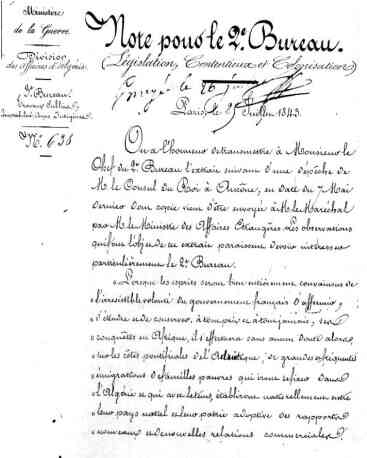 Ministère
de la Guerre.
Division
des Affaires d'Algérie
Bureau
N.° 638
Note pour le 2.e Bureau.
(Législation, Contentieux et Colonisation)
Paris, le 1843.
On a l'honneur de transmettre à Monsieur le
Chef du 2.e Bureau l'extrait suivant d'une dépêche de
M. le Consul du Roi à Ancône, en date du 7 Mai
dernier dont copie vient d'être envoyée à M. le Maréchal
par M. le Ministre des Affaires Etrangères. Les observations
qui font l'objet de cet extrait paraissent devoir intéresser
particulièrement le 2.e Bureau.
« Lorsque les esprits seront bien entièrement convaincus de
« l'irrésistible volonté du gouvernement français d'affermir,
« d'étendre et de conserver, à tout prix et à tout jamais, ses
« conquêtes en Afrique, il s'effectuera sans aucun doute alors,
« sur les côtes pontificales de l'Adriatique, de grandes et fréquentes
« émigrations de familles pauvres qui iront se fixer dans
« l'Algérie et qui avec le tems, établiront naturellement entre
« leur pays natal et leur patrie adoptive des rapports
« nouveaux et de nouvelles relations commerciales.